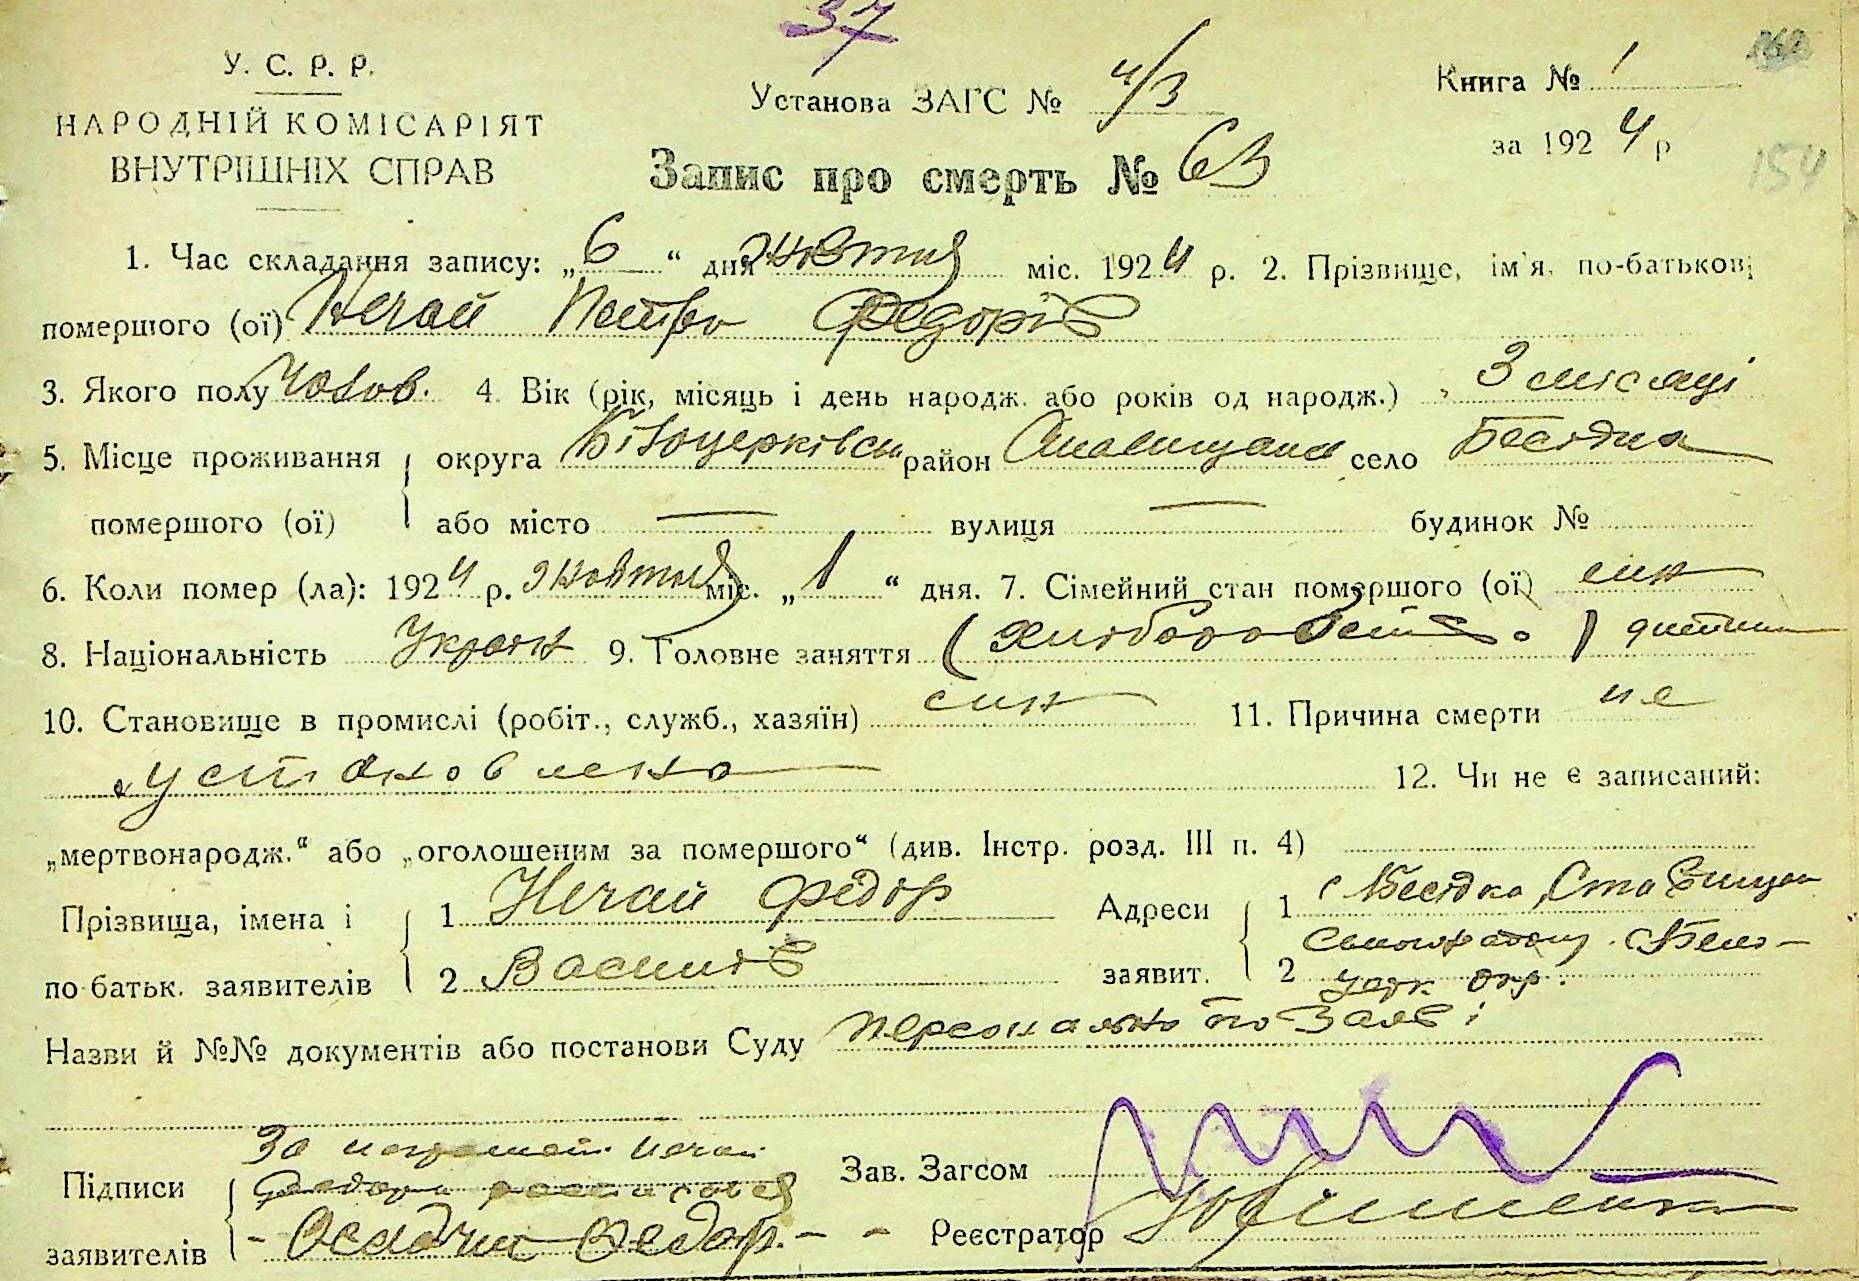 37
У. С. Р. Р.
НАРОДНІЙ КОМІСАРІЯТ
ВНУТРІШНІХ СПРАВ
Установа ЗАГС № 4/3
Книга № 1
за 1924 р
154
Запис про смерть № 63
1. Час складання запису: „6“ дня жовтня міс. 1924 р. 2. Прізвище, ім'я, по-батькові
помершого (ої) Нечай Петро Федорів
3. Якого полу чолов. 4. Вік (рік, місяць і день народж. або років од народж.) 3 місяці
5. Місце проживання округа Білоцерківськ район село Бесідка
помершого (ої) або місто — вулиця — будинок №
6. Коли помер (ла): 1924 р. жовтня міс. „1“ дня. 7. Сімейний стан помершого (ої) син
8. Національність Україн 9. Головне заняття (Хліборобств.) дитина
10. Становище в промислі (робіт., служб., хазяїн) син 11. Причина смерти не
установлена 12. Чи не є записаний:
„мертвонародж.“ або „оголошеним за помершого“ (див. Інстр. розд. III п. 4)
Прізвища, імена і 1 Нечай Федір Адреси 1 с Бесідка, Ставищан
по-батьк. заявителів 2 Василів заявит. 2 с Біло-
церк. окр.
Назви й №№ документів або постанови Суду персонально по заяві
За неграмотн. Нечая
Федора росписався
Підписи
заявителів - Осадчий Федор. - -
Зав. Загсом
Реєстратор